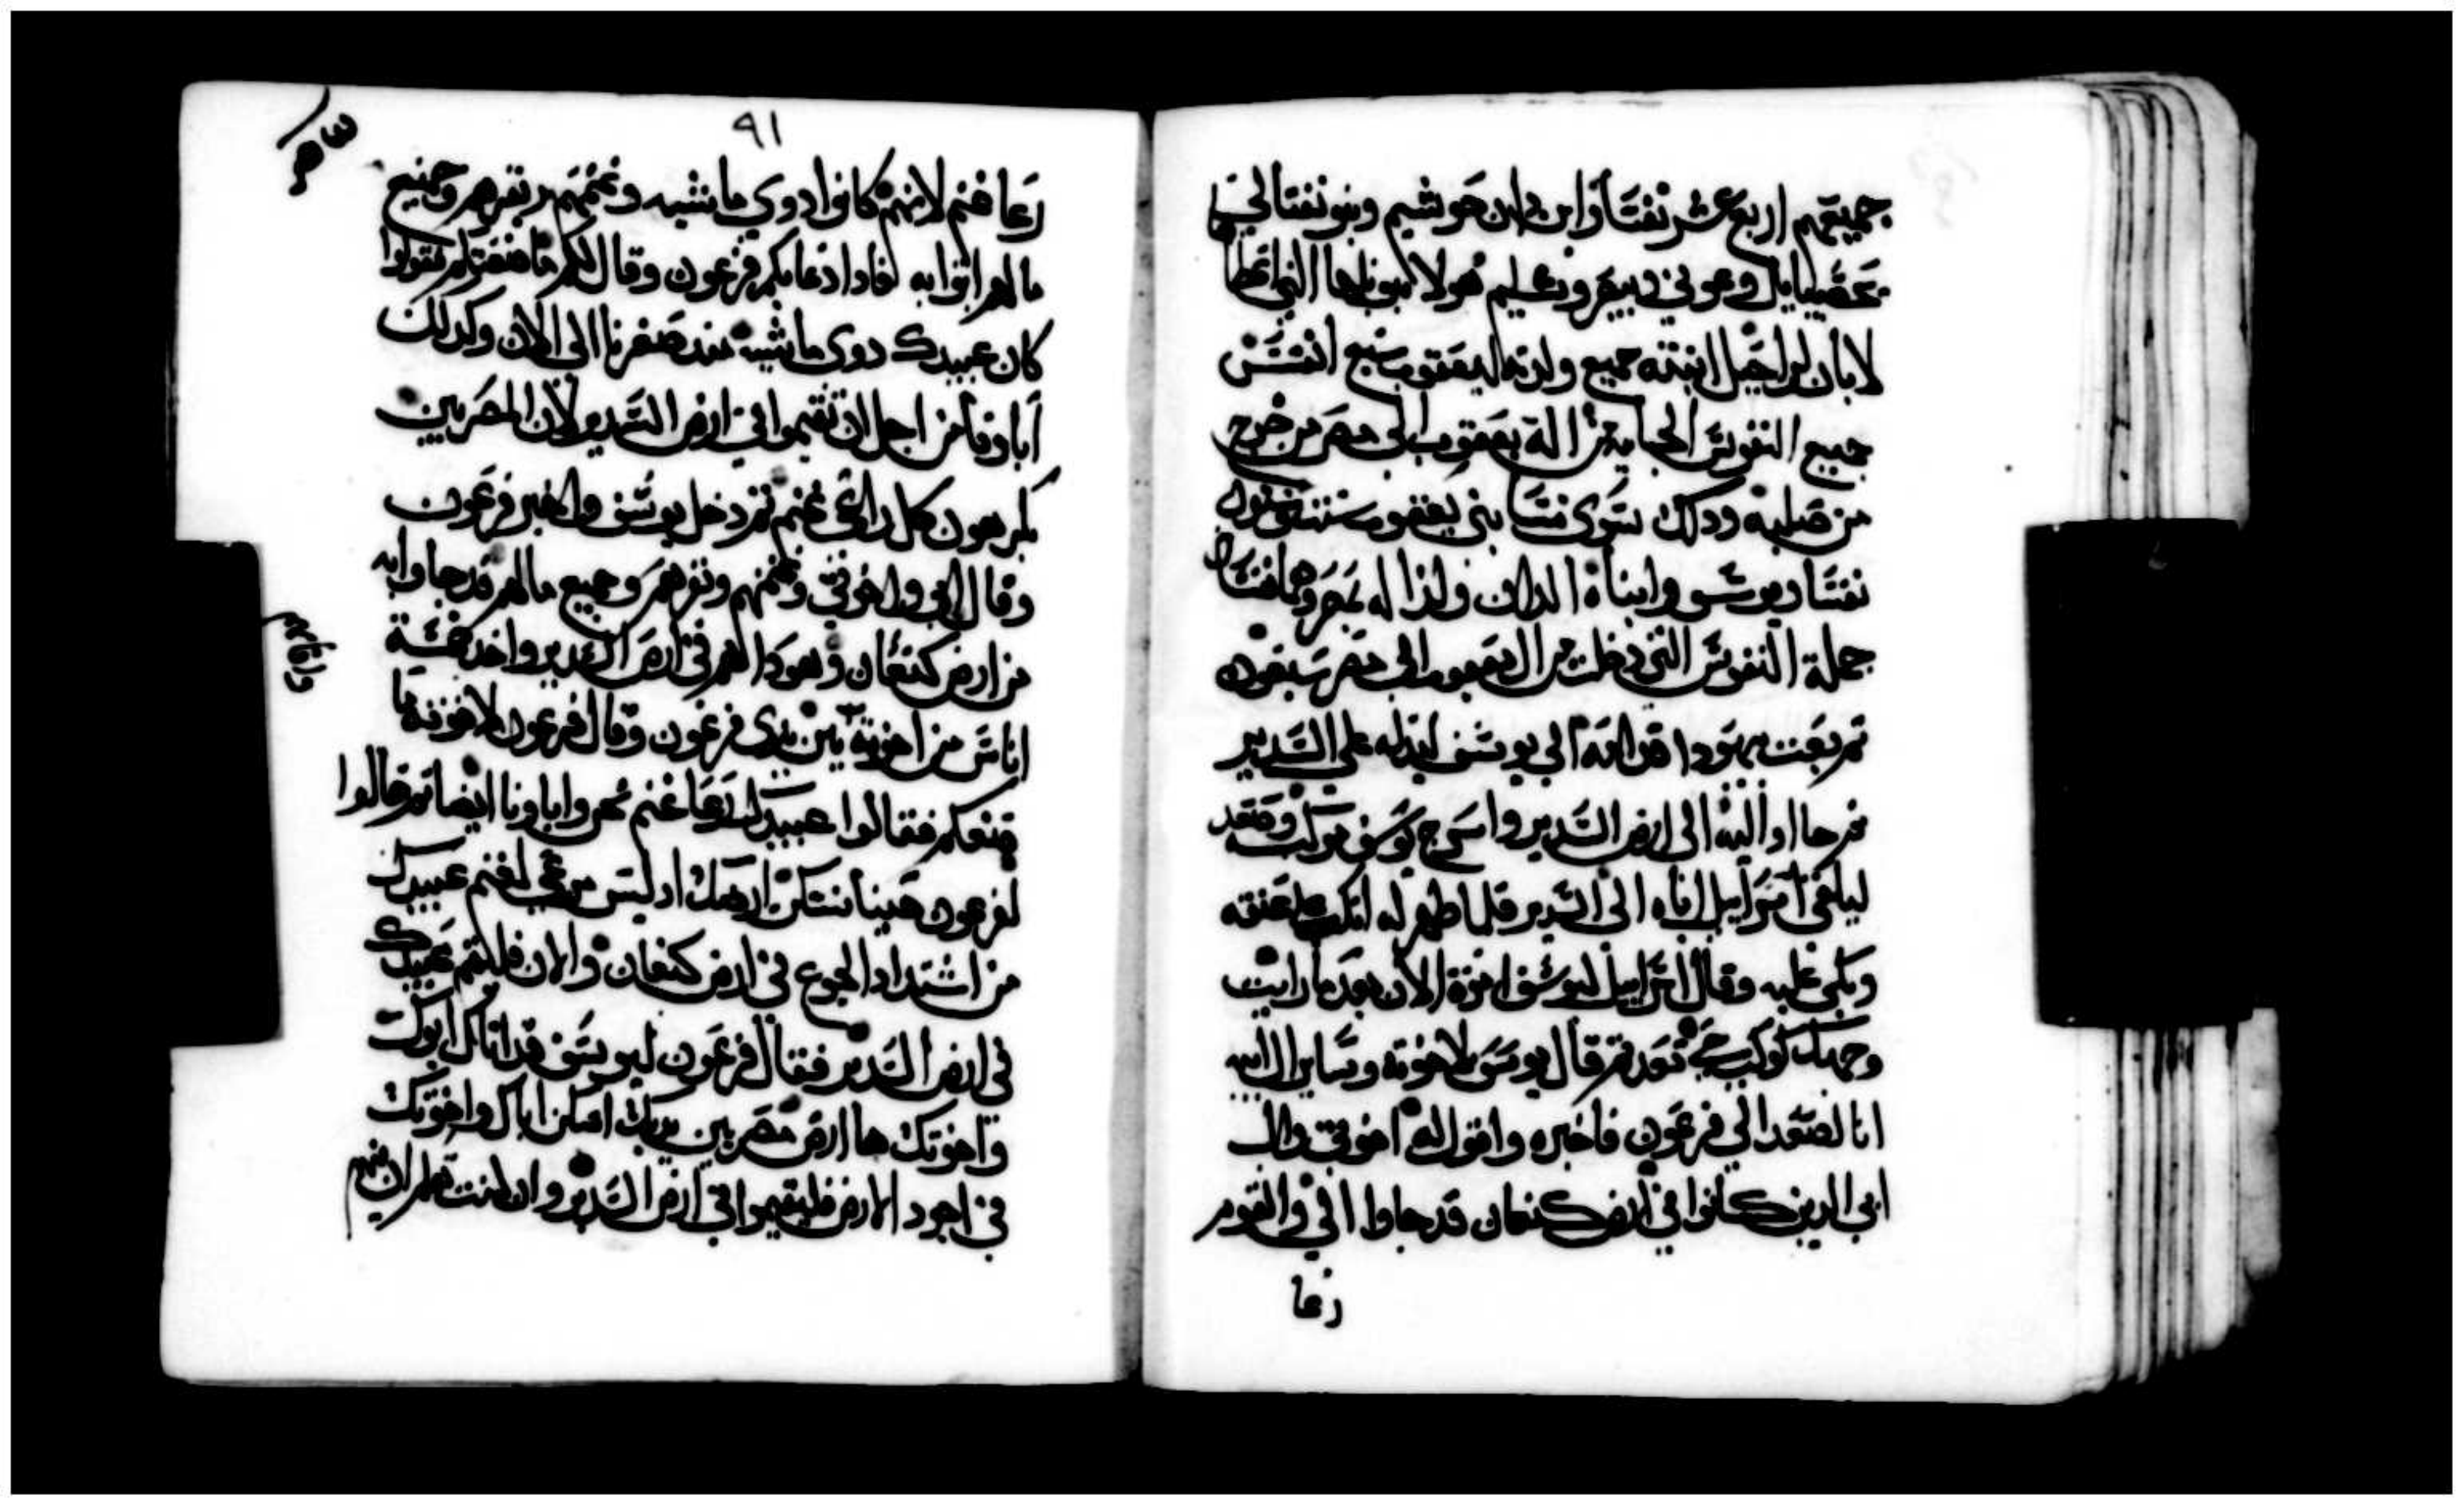 جميعهم اربع عشر نفسا وابن دان حوشيم وبنو نفتالي
يحصيايل وعوني وييصر وشليم هولا بنو بلها التي اعطاها
لابان لراحيل ابنته جميع ولدته ليعقوب سبع انفس
جميع النفوس الجايه من الة يعقوب الى مصر من خرج
من صلبه ودلك سوى نسا بني يعقوب ستة وستون
نفسا ويوسف وابناه الدان ولدا له بمصر وهما نفسان
جملة النفوس التي دخلت من ال يعقوب الى مصر سبعون
تم بعت يهودا قدامه الي يوسف ليدله علي السدير
تم جااوا اليه الى ارض السدير واسرج يوسف مركبه وصعد
ليلقى اسراييل اباه الى السدير فلما ظهر له انكب على عنقه
وبكى عليه وقال اسراييل ليوسف اموت الان بعد ما رايت
وجهك كونك حي بعد تم قال يوسف لاخوته وساير ال ابيه
انا اصعد الي فرعون فاخبره واقول له اخوتي وال
ابي الدين كانوا في ارض كنعان قد جاوا الي والقوم
رعا
٩١
رعا غنم لانهم كانوا دوي ماشيه وغنمهم وبقرهم وجميع
مالهم اتوا به فادا دعا بكم فرعون وقال لكم ما صنعتكم تقولوا
كان عبيدك دوى ماشيه مند صغرنا الى الان وكدلك
اباونا من اجل ان تقيموا في ارض السدير لان المصريين
يكرهون كل راعي غنم تم دخل يوسف واخبر فرعون
وقال ابي واخوتي وغنمهم وبقرهم وجميع مالهم قد جاوا به
من ارض كنعان وهودا هم في ارض السدير واخد خمسة
اناس من اخوته بين يدى فرعون وقال فرعون لاخوته ما
صنعتكم فقالوا عبيدك رعا غنم نحن واباونا ايضا تم قالوا
لفرعون جينا نسكن ارضك اد ليس مرعى لغنم عبيدك
من اشتداد الجوع في ارض كنعان والان فليقم عبيدك
في ارض السدير فقال فرعون ليوسف قد اتاك ابوك
واخوتك ها ارض مصر بين يديك اسكن اباك واخوتك
في اجود الارض فليقيموا في ارض السدير وان كنت تعلم ان منهم